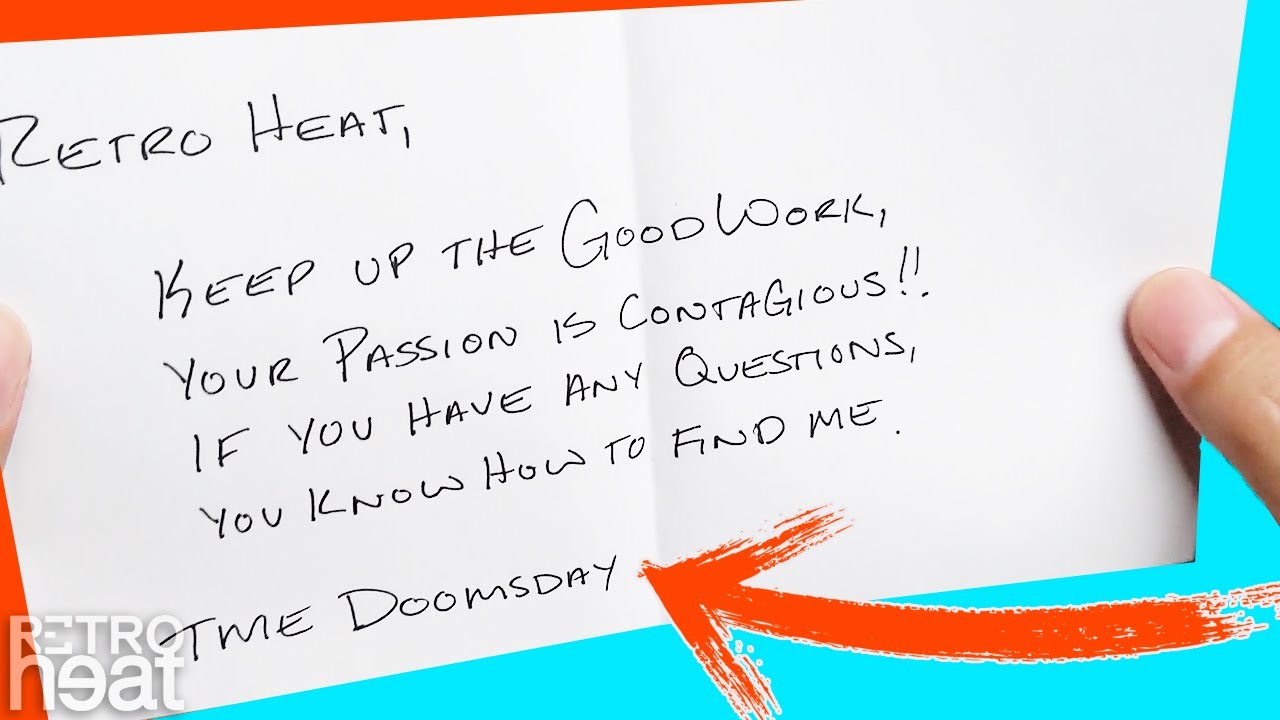 RETRO HEAT,
KEEP UP THE GOOD WORK,
YOUR PASSION IS CONTAGIOUS!!
IF YOU HAVE ANY QUESTIONS,
YOU KNOW HOW TO FIND ME.
TME DOOMSDAY
RETRO
heat